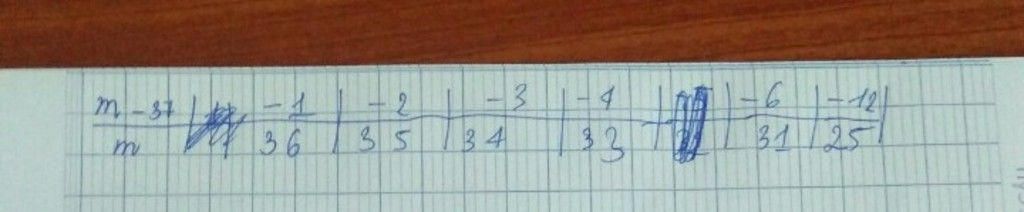 m - 37 | -1 | -2 | -3 | -4 | | -6 | -12 |
m | 36 | 35 | 34 | 33 | | 31 | 25 |